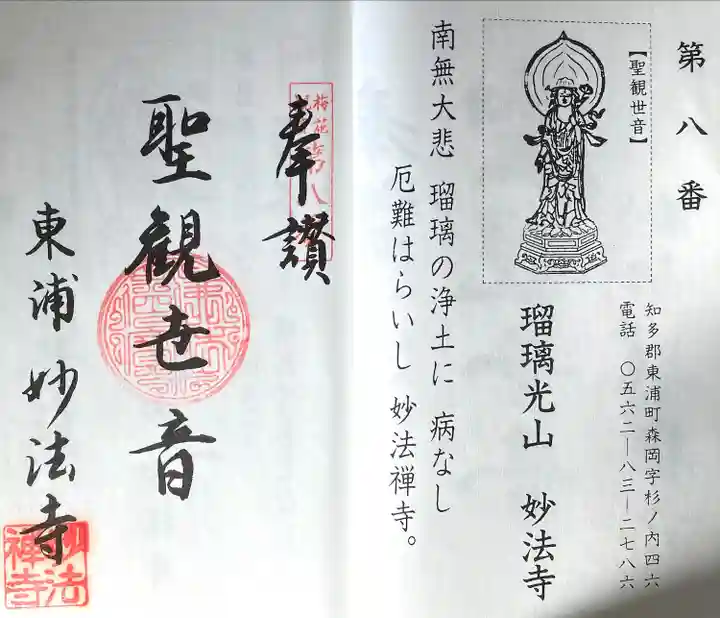 第八番
【聖観世音】
知多郡東浦町森岡字杉ノ内四六
電話 〇五六二―八三―二七八六
瑠璃光山 妙法寺
南無大悲 瑠璃の浄土に 病なし
厄難はらいし 妙法禅寺。
奉讃
梅花
第八
聖観世音
東浦 妙法寺
妙法
禅寺